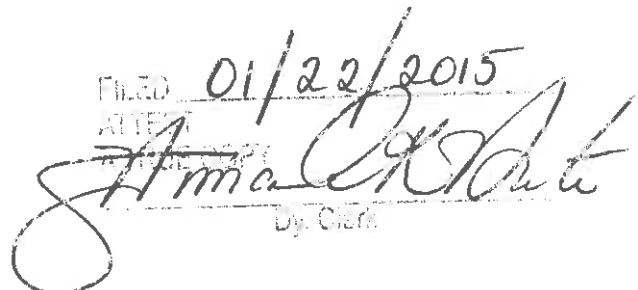 FILED 01/22/2015
ATTEST
A TRUE COPY
Dy. Clerk